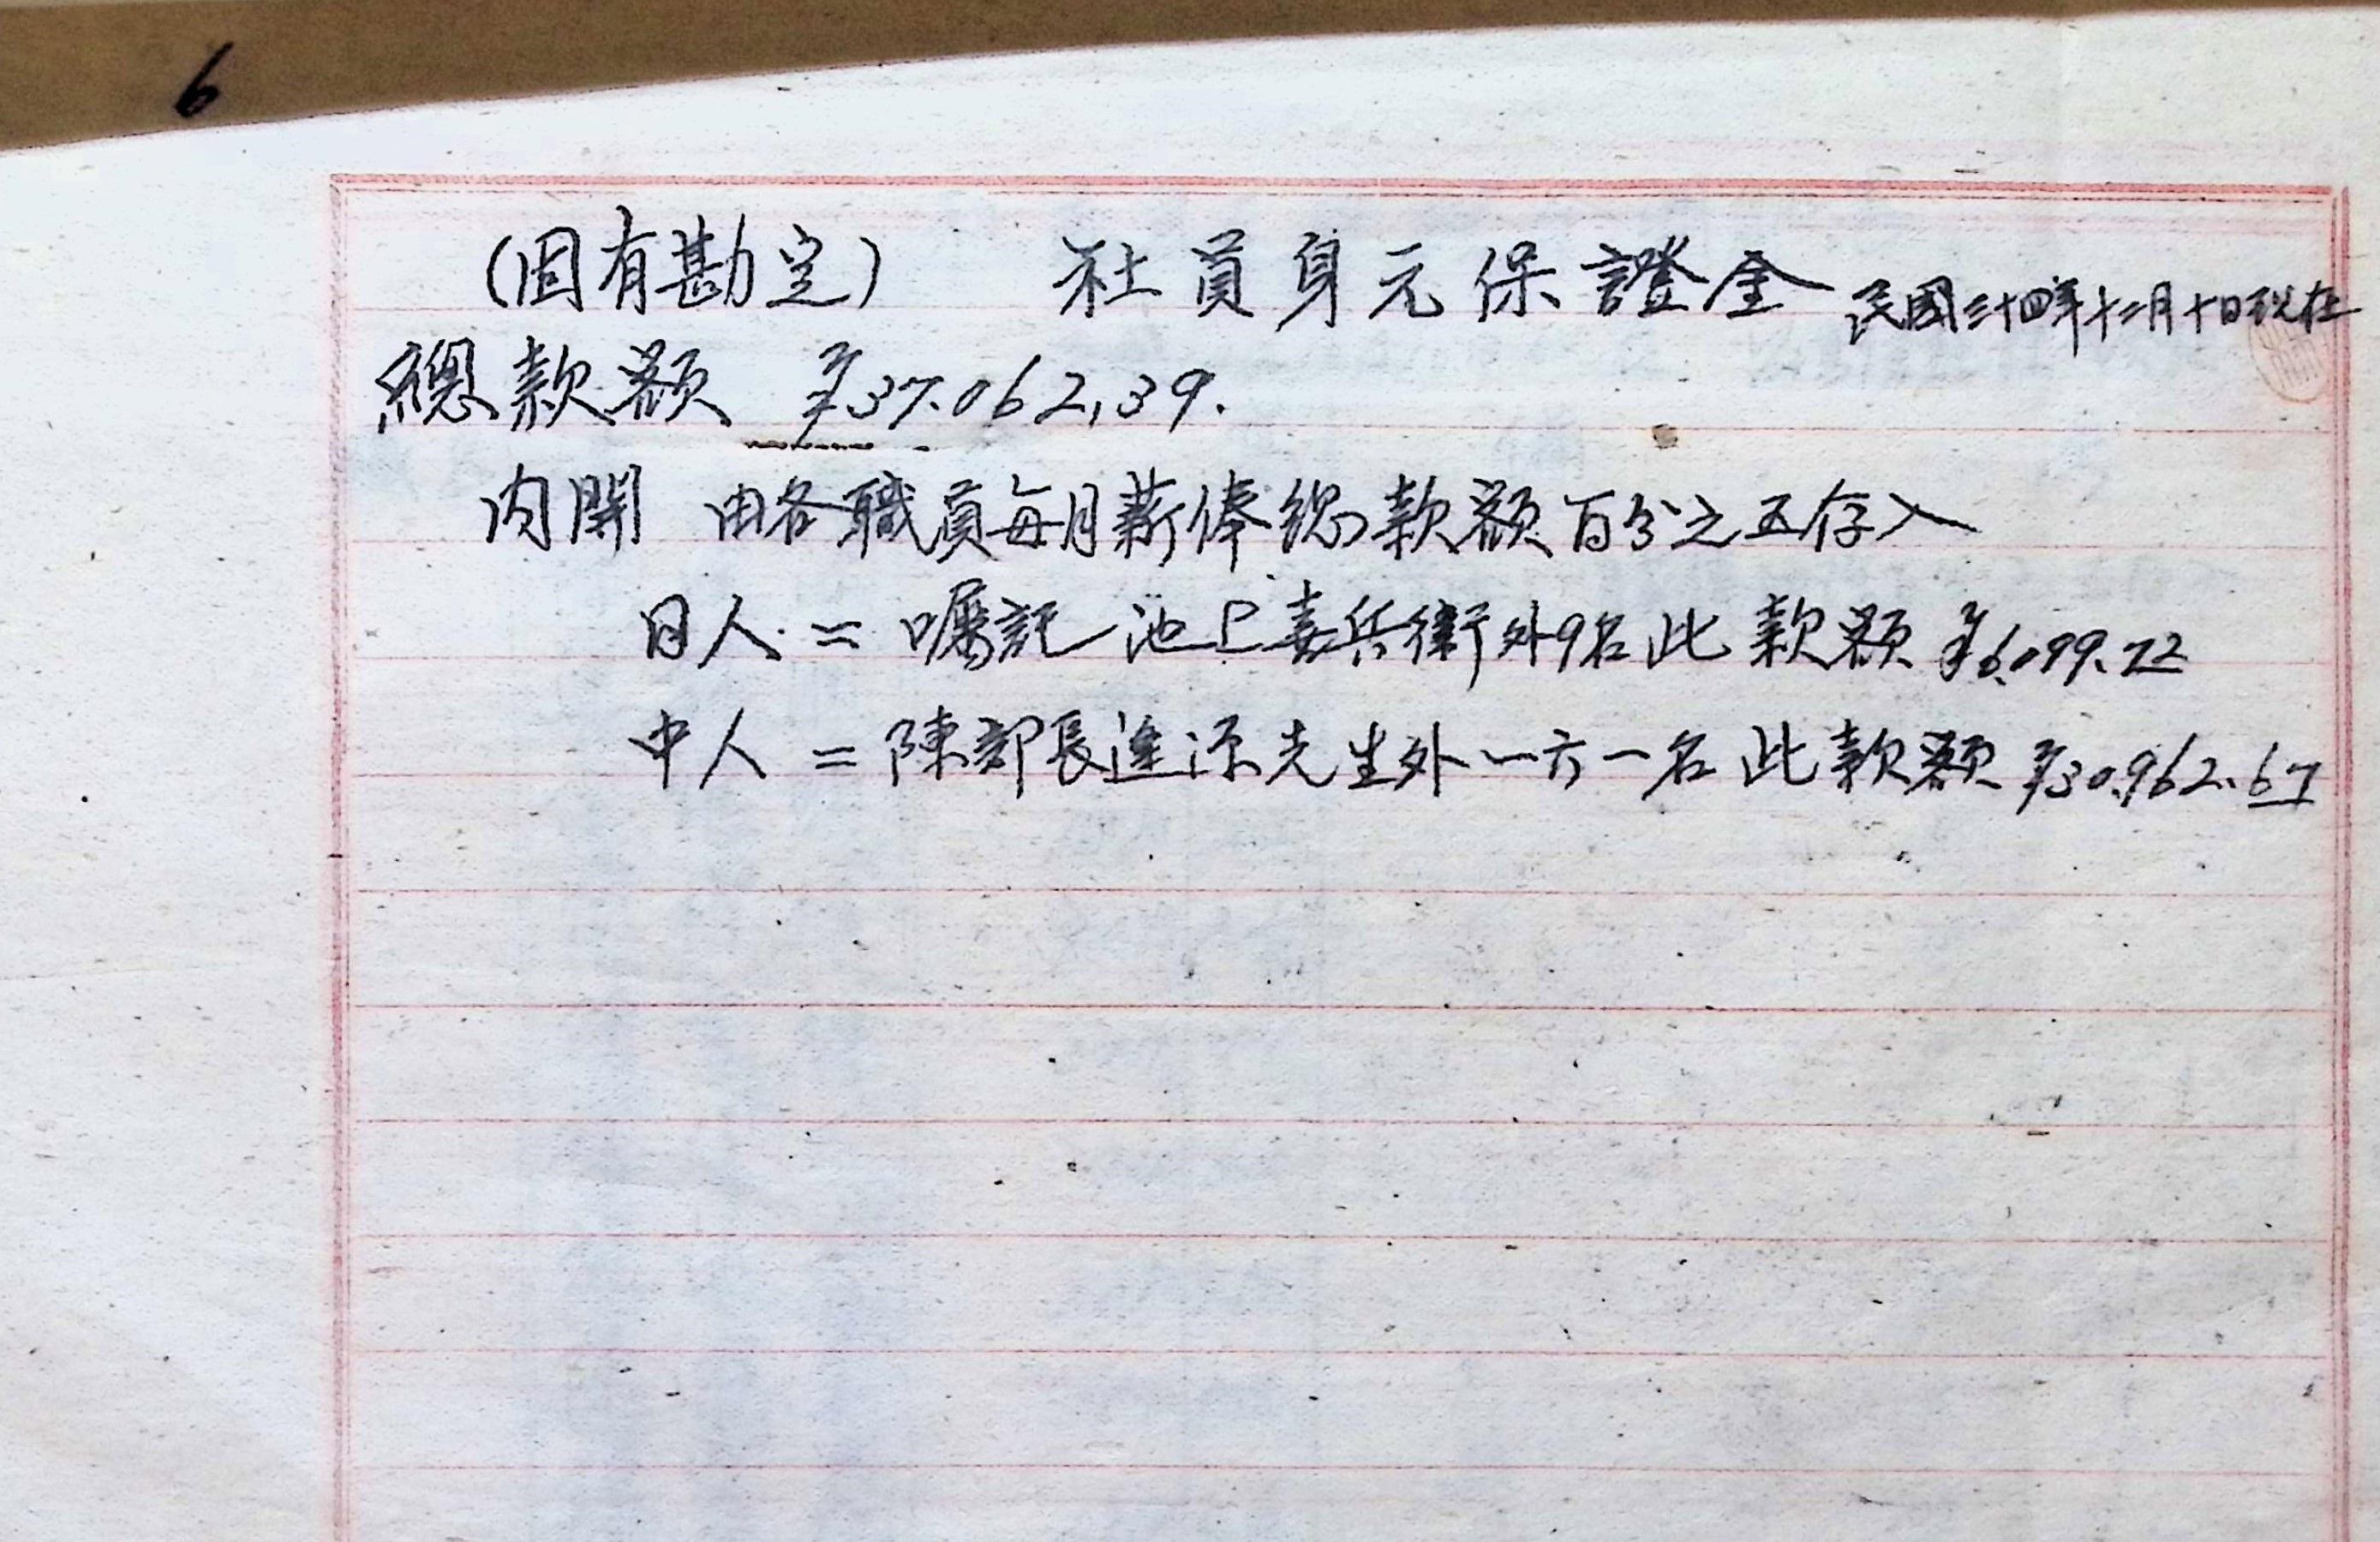 6
(固有勘定) 社員身元保證金 民國三十四年十二月十日現在
總款額 ¥37.062,39.
内開 由各職員每月薪俸總款額百分之五存入
日人 = 囑託 池上喜兵衛外9名此款額 ¥6.099.72
中人 = 陳部長逢源先生外一六一名此款額 ¥30.962.67